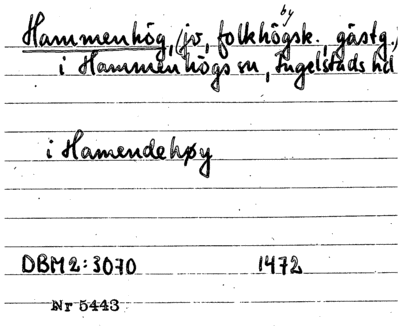 by
Hammenhög, (jv, folkhögsk., gästg.)
i Hammenhögs sn, Ingelstads hd
i Hamendehøy
DBM 2:3070 1472
Nr 5443